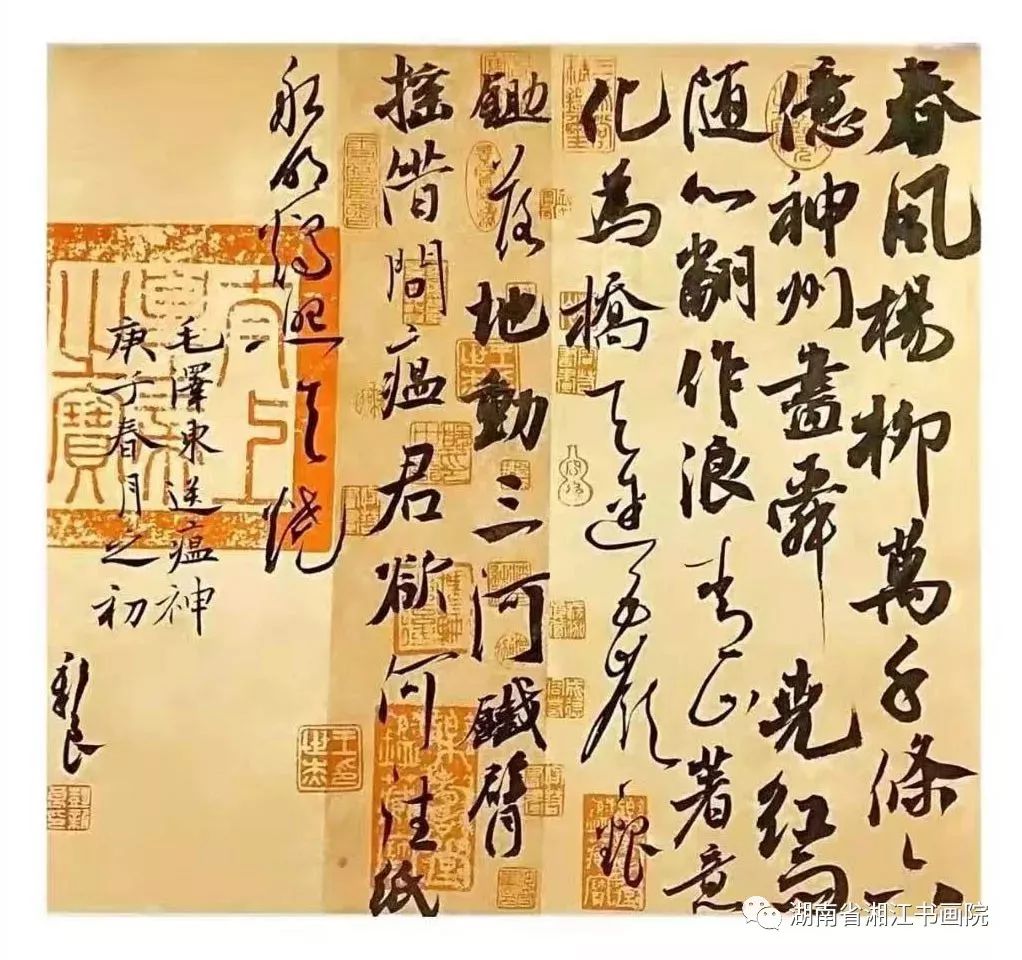 春風楊柳萬千條六
億神州盡舜堯紅雨
随心翻作浪青山著意
化為橋天連五嶺銀
鋤落地動三河鐵臂
摇借問瘟君欲何往紙
船明燭照天燒
毛澤東送瘟神
庚子春月之初
新良
太上
皇帝
之寶
湖南省湘江书画院